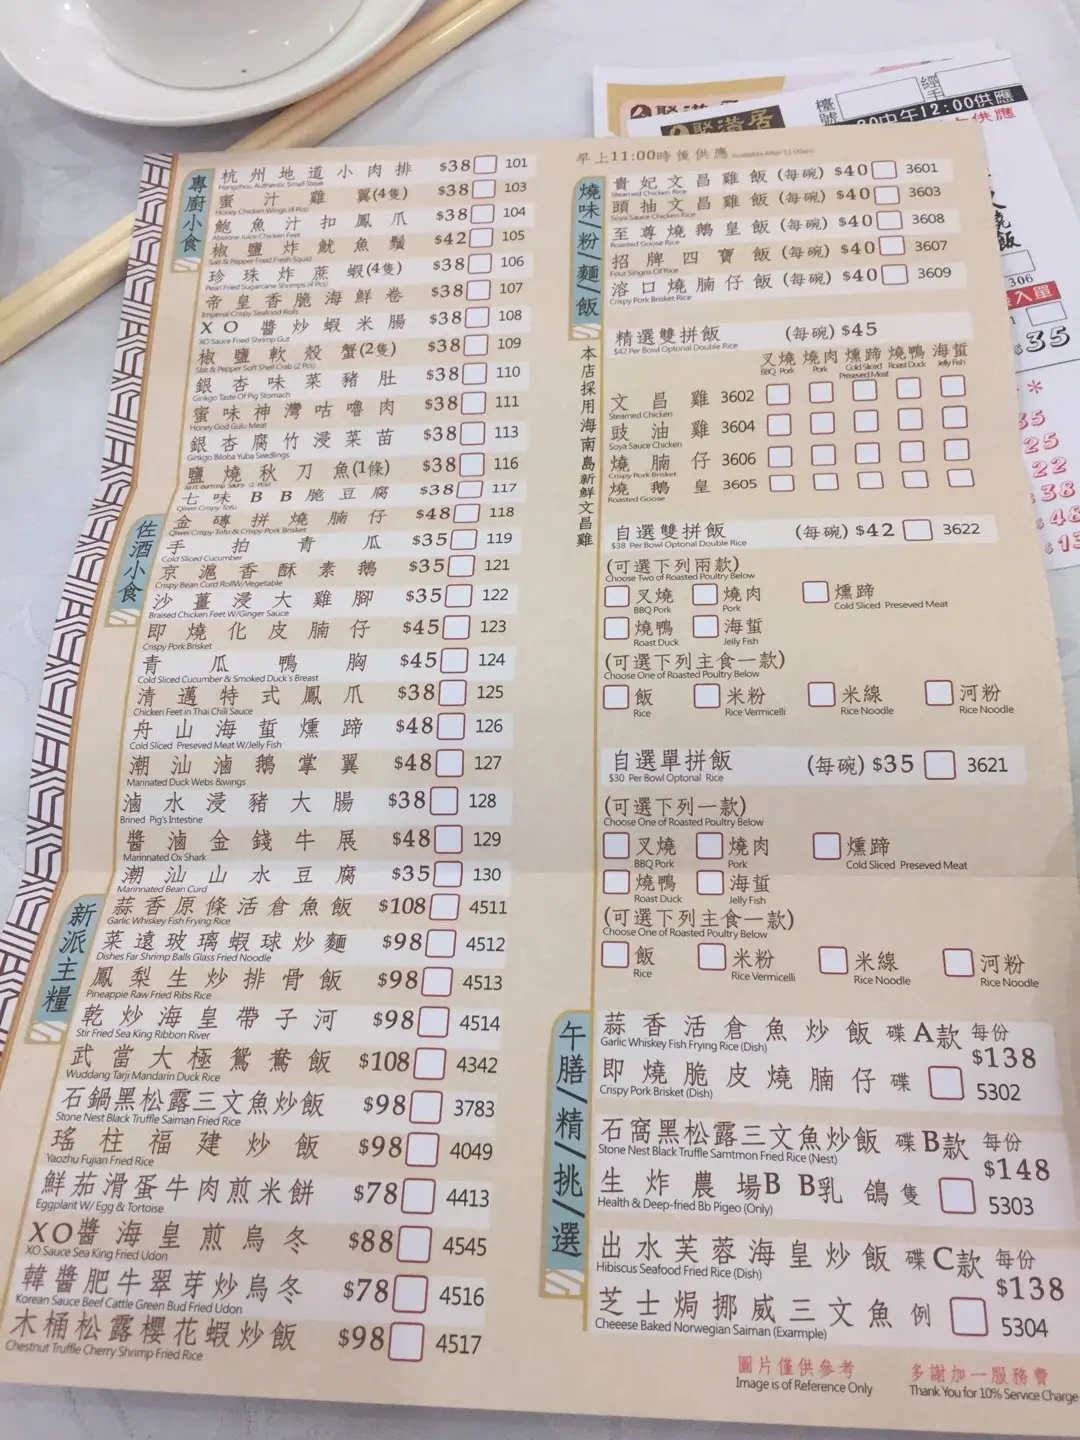 聚滿居
經手
檯號
12:00供應
306
入單
35
*
35
25
22
38
48
專廚小食
杭州地道小肉排 $38 101
Hangzhou Authentic Small Steak
蜜汁雞翼(4隻) $38 103
Honey Chicken Wings (4 Pcs)
鮑魚汁扣鳳爪 $38 104
Abalone Juice Chicken Feet
椒鹽炸魷魚鬚 $42 105
Salt & Pepper Fried Fresh Squid
珍珠炸蔗蝦(4隻) $38 106
Pearl Fried Sugarcane Shrimps (4 Pcs)
帝皇香脆海鮮卷 $38 107
Imperial Crispy Seafood Rolls
XO醬炒蝦米腸 $38 108
XO Sauce Fried Shrimp Gut
椒鹽軟殼蟹(2隻) $38 109
Salt & Pepper Soft Shell Crab (2 Pcs)
銀杏味菜豬肚 $38 110
Ginkgo Taste Of Pig Stomach
蜜味神灣咕嚕肉 $38 111
Honey God Gulu Meat
銀杏腐竹浸菜苗 $38 113
Ginkgo Biloba Yuba Seedlings
鹽燒秋刀魚(1條) $38 116
七味BB脆豆腐 $38 117
Qiwei Crispy Tofu
佐酒小食
金磚拼燒腩仔 $48 118
Qiwei Crispy Tofu & Crispy Pork Brisket
手拍青瓜 $35 119
Cold Sliced Cucumber
京滬香酥素鵝 $35 121
Crispy Bean Curd RollW/Vegetable
沙薑浸大雞腳 $35 122
Braised Chicken Feet W/Ginger Sauce
即燒化皮腩仔 $45 123
Crispy Pork Brisket
青瓜鴨胸 $45 124
Cold Sliced Cucumber & Smoked Duck's Breast
清邁特式鳳爪 $38 125
Chicken Feet in Thai Chili Sauce
舟山海蜇燻蹄 $48 126
Cold Sliced Preseved Meat W/Jelly Fish
潮汕滷鵝掌翼 $48 127
Marinated Duck Webs &wings
滷水浸豬大腸 $38 128
Brined Pig's Intestine
醬滷金錢牛展 $48 129
Marinnated Ox Shark
潮汕山水豆腐 $35 130
Marinnated Bean Curd
新派主糧
蒜香原條活倉魚飯 $108 4511
Garlic Whiskey Fish Frying Rice
菜遠玻璃蝦球炒麵 $98 4512
Dishes Far Shrimp Balls Glass Fried Noodle
鳳梨生炒排骨飯 $98 4513
Pineappie Raw Fried Ribs Rice
乾炒海皇帶子河 $98 4514
Stir Fried Sea King Ribbon River
武當大極鴛鴦飯 $108 4342
Wuddang Tarji Mandarin Duck Rice
石鍋黑松露三文魚炒飯 $98 3783
Stone Nest Black Truffle Saiman Fried Rice
瑤柱福建炒飯 $98 4049
Yaozhu Fujian Fried Rice
鮮茄滑蛋牛肉煎米餅 $78 4413
Eggplarit W/ Egg & Tortoise
XO醬海皇煎烏冬 $88 4545
XO Sauce Sea King Fried Udon
韓醬肥牛翠芽炒烏冬 $78 4516
Korean Sauce Beef Cattle Green Bud Fried Udon
木桶松露櫻花蝦炒飯 $98 4517
Chestnut Truffle Cherry Shrimp Fried Rice
早上11:00時後供應 Available After 11:00am
燒味/粉/麵/飯
貴妃文昌雞飯(每碗) $40 3601
Steamed Chicken Rice
頭抽文昌雞飯(每碗) $40 3603
Soya Sauce Chicken Rice
至尊燒鵝皇飯(每碗) $40 3608
Roasted Goose Rice
招牌四寶飯(每碗) $40 3607
Four Singns Of Rice
溶口燒腩仔飯(每碗) $40 3609
Crispy Pork Brisket Rice
精選雙拼飯 (每碗) $45
$42 Per Bowl Optonal Double Rice
叉燒 燒肉 燻蹄 燒鴨 海蜇
BBQ Pork Pork Cold Sliced Preseved Meat Roast Duck Jelly Fish
本店採用海南島新鮮文昌雞
文昌雞 3602
Steamed Chicken
豉油雞 3604
Soya Sauce Chicken
燒腩仔 3606
Crispy Pork Brisket
燒鵝皇 3605
Roasted Goose
自選雙拼飯 (每碗) $42 3622
$38 Per Bowl Optonal Double Rice
(可選下列兩款)
Choose Two of Roasted Poultry Below
叉燒 燒肉 燻蹄
BBQ Pork Pork Cold Sliced Preseved Meat
燒鴨 海蜇
Roast Duck Jelly Fish
(可選下列主食一款)
Choose One of Roasted Poultry Below
飯 米粉 米線 河粉
Rice Rice Vermicelli Rice Noodle Rice Noodle
自選單拼飯 (每碗) $35 3621
$30 Per Bowl Optonal Rice
(可選下列一款)
Choose One of Roasted Poultry Below
叉燒 燒肉 燻蹄
BBQ Pork Pork Cold Sliced Preseved Meat
燒鴨 海蜇
Roast Duck Jelly Fish
(可選下列主食一款)
Choose One of Roasted Poultry Below
飯 米粉 米線 河粉
Rice Rice Vermicelli Rice Noodle Rice Noodle
午膳/精/挑/選
蒜香活倉魚炒飯 碟 A款 每份
Garlic Whiskey Fish Frying Rice (Dish)
$138
即燒脆皮燒腩仔 碟 5302
Crispy Pork Brisket (Dish)
石窩黑松露三文魚炒飯 碟 B款 每份
Stone Nest Black Truffle Samtmon Fried Rice (Nest)
$148
生炸農場BB乳鴿 隻 5303
Health & Deep-fried Bb Pigeo (Only)
出水芙蓉海皇炒飯 碟 C款 每份
Hibiscus Seafood Fried Rice (Dish)
$138
芝士焗挪威三文魚 例 5304
Cheeese Baked Norwegian Saiman (Example)
圖片僅供參考
Image is of Reference Only
多謝加一服務費
Thank You for 10% Service Charge